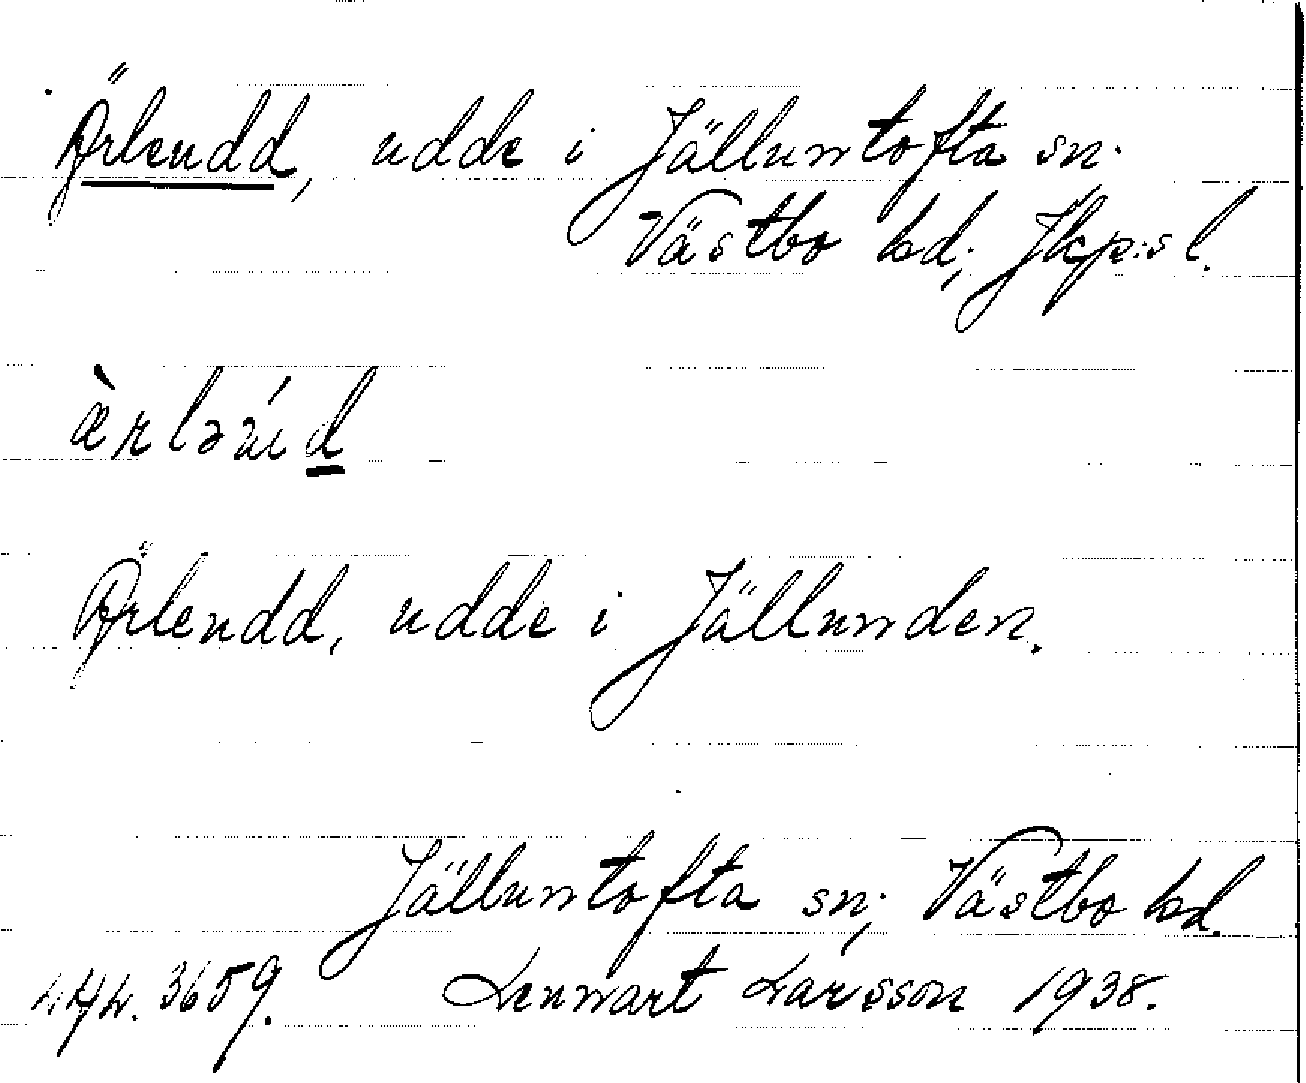 Örlendd, udde i Jälluntofta sn.
Västbo hd; Jkp:s l.
Örlendd, udde i Jällunden.
Jälluntofta sn; Västbo hd.
3659. Lennart Larsson 1938.